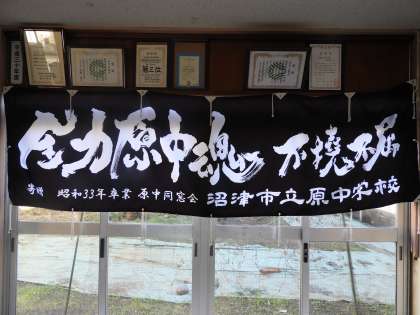 全力原中魂 不撓不屈
寄贈 昭和33年卒業 原中同窓会 沼津市立原中学校
第三位